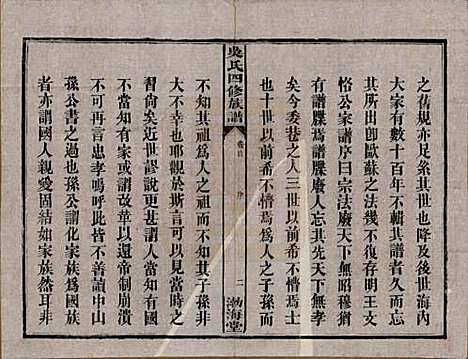 之舊規亦足系其世也降及後世海內
大家有數十百年不輯其譜者久而忘
其所出卽歐蘇之法幾不復存明王文
恪公家譜序曰宗法廢天下無昭穆猶
有譜牒焉譜牒廢人忘其祖父其賤士
矣今委巷之人三世以前希不懵焉士
也十世以前希不懵焉為人之子孫而
吳氏四修族譜
卷首
序
二
渤海堂
不知其祖為人之祖而不知其子孫非
大不幸也耶觀於斯言可以見當時之
習尚矣近世謬說甚或謂人當知有國
不當知有家或謂改革以還帝制崩潰
不可再言孝嗚呼此皆不善讀中山
孫公書之過也孫公謂化家族為國族
者亦謂國人親愛固結如家族然耳非